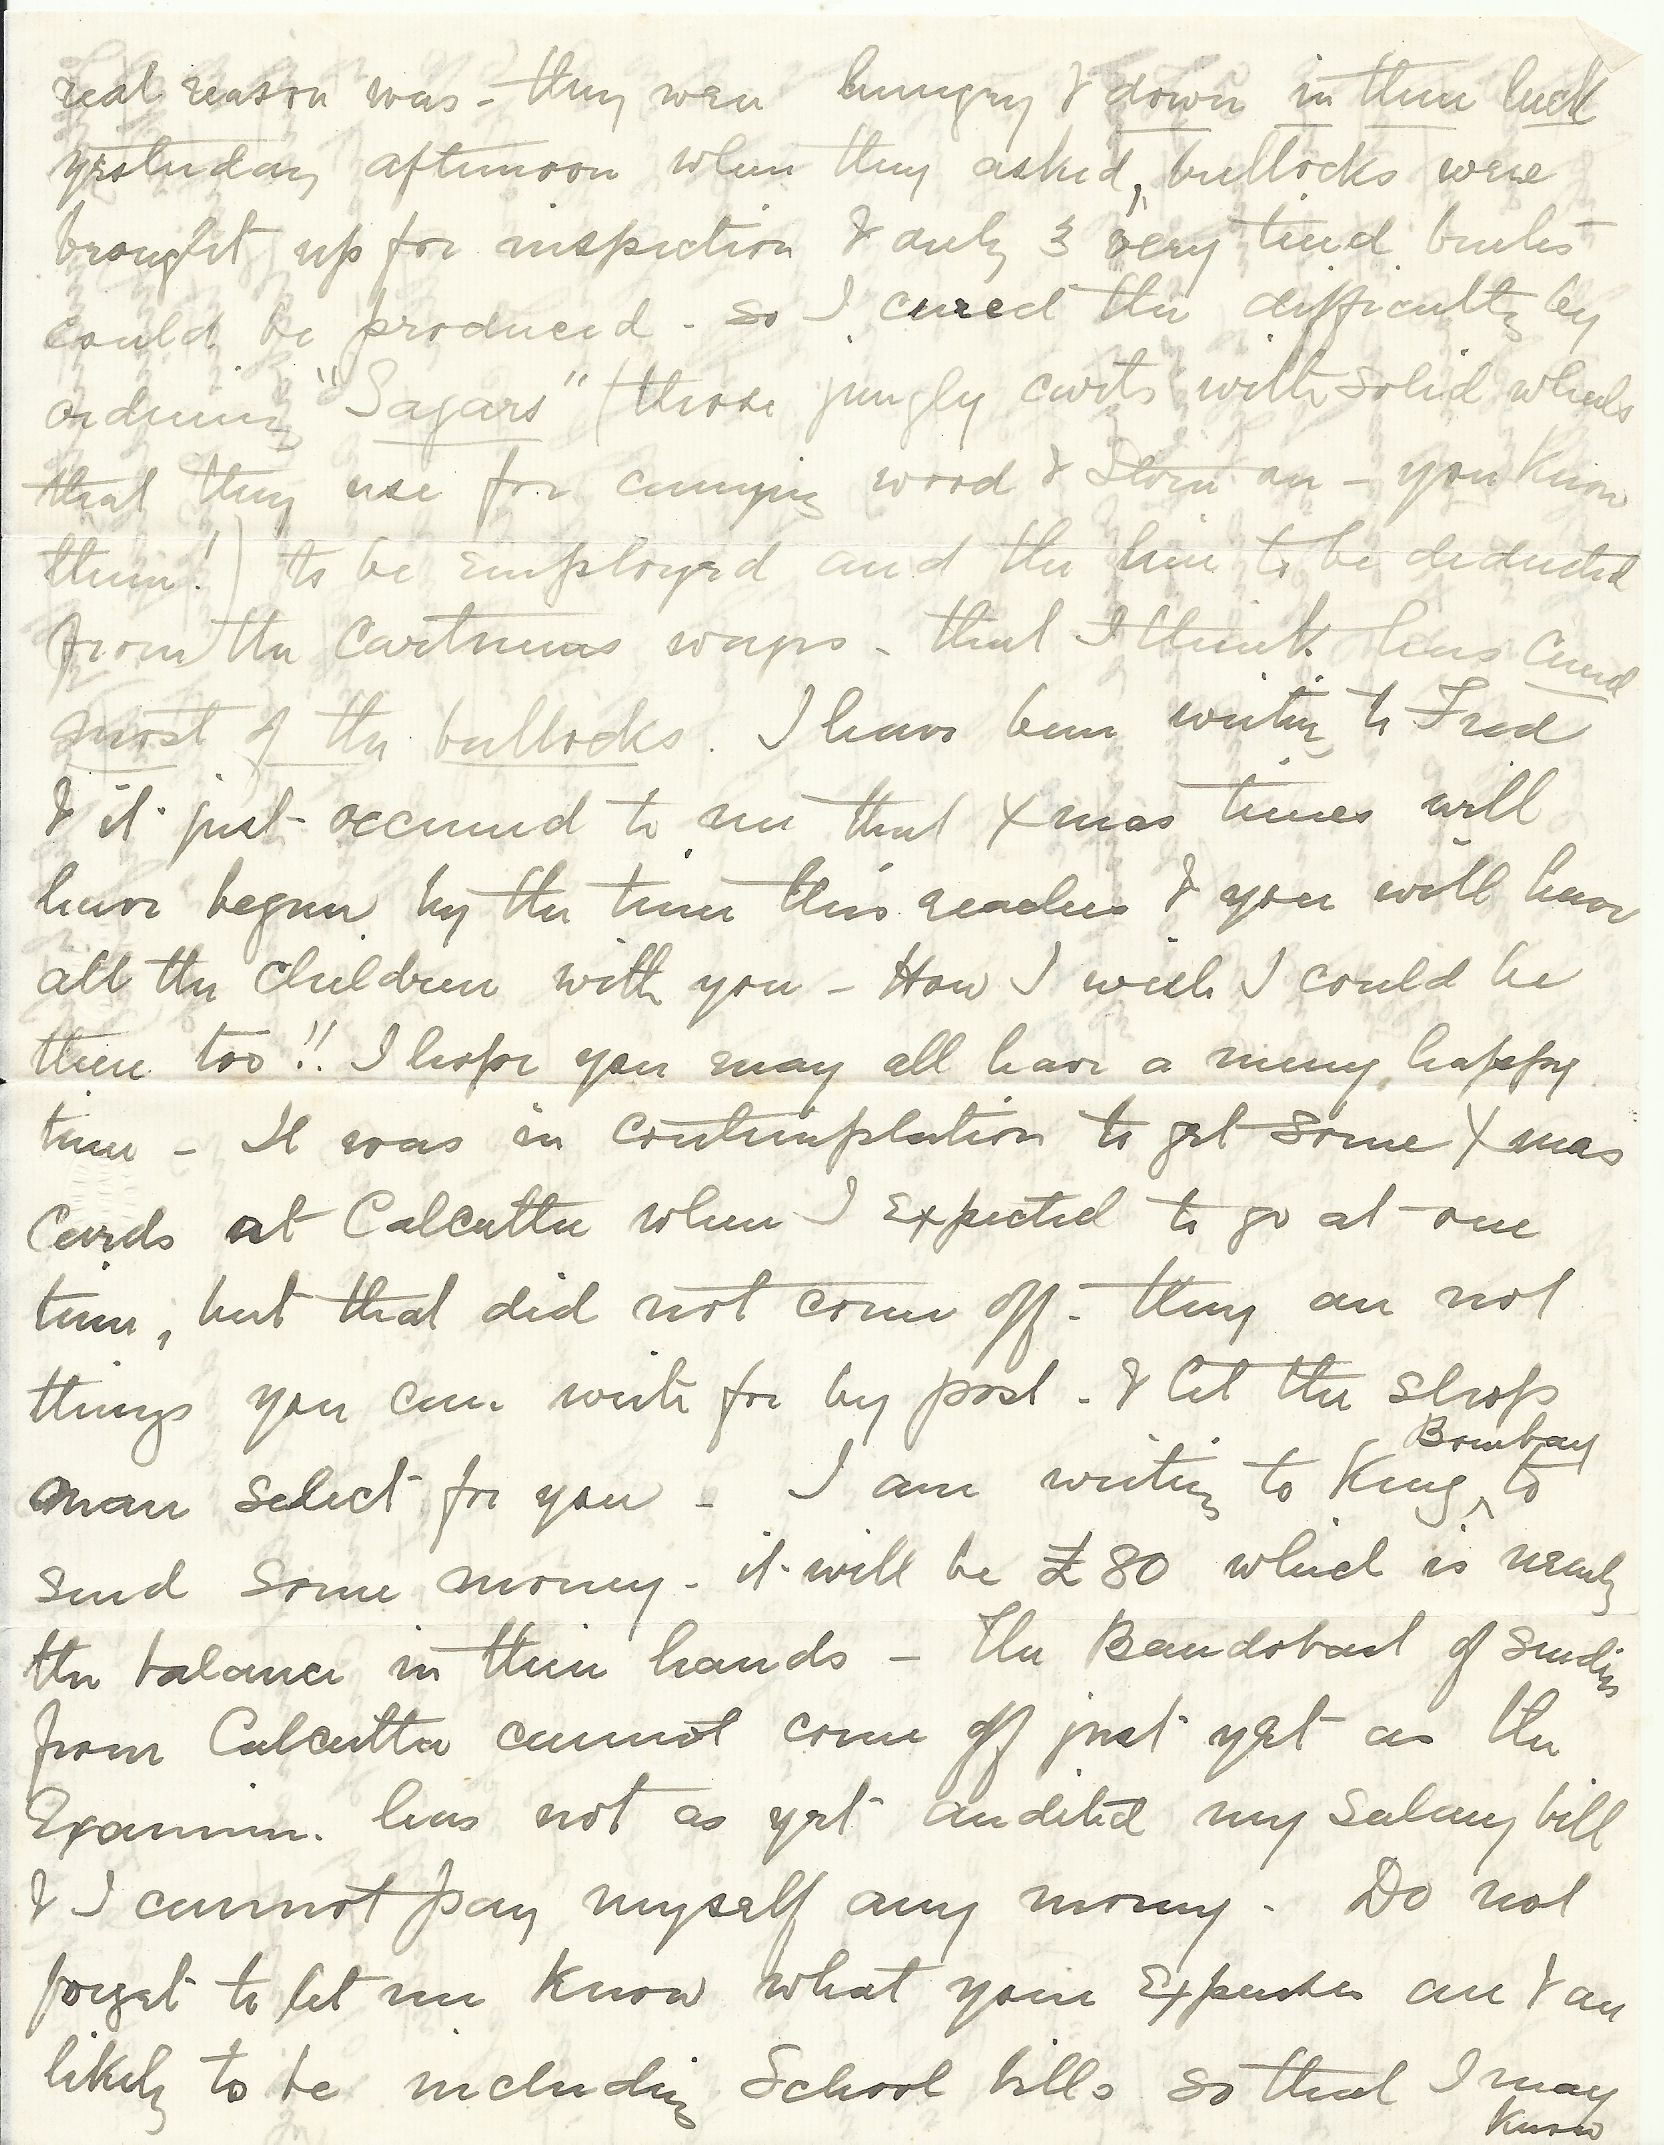 real reason was - they were hungry & down in their luck
yesterday afternoon when they asked, bullocks were
brought up for inspection & only 3 very tired brutes
could be produced - so I cured the difficulty by
ordering "Sagars" (those jungly carts with solid wheels
that they use for carrying wood & stone on - you know
them!) to be employed and the hire to be deducted
from the cartmens wages - that I think has cured
most of the bullocks. I have been writing to Fred
& it just occurred to me that Xmas times will
have begun by the time this reaches & you will have
all the children with you - How I wish I could be
there too!! I hope you may all have a merry, happy
time - It was in contemplation to get some Xmas
Cards at Calcutta when I expected to go at one
time, but that did not come off - they are not
things you can write for by post - & let the shops
man select for you - I am writing to King, Bombay to
send some money - it will be £80 which is nearly
the balance in their hands - The Bandobast of sending
from Calcutta cannot come off just yet as the
Examiner has not as yet audited my salary bill
& I cannot pay myself any money - Do not
forget to let me know what your expenses are & are
likely to be including School bills so that I may
know